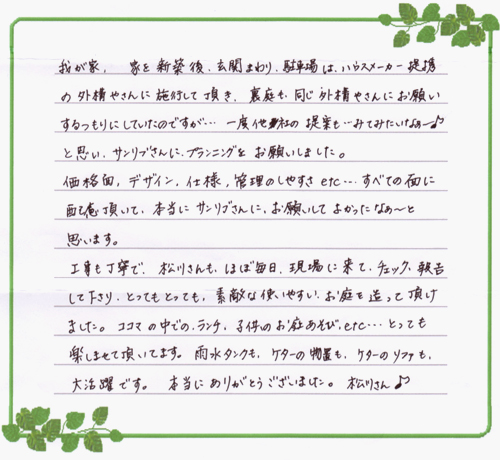 我が家、 家を新築後、玄関まわり、駐車場は、ハウスメーカー提携
の外構やさんに施行して頂き、裏庭も、同じ外構やさんにお願い
するつもりにしていたのですが… 一度他社の提案も…みてみたいなぁ〜♪
と思い、サンリブさんに、プランニングを お願いしました。
価格面、デザイン、仕様、管理のしやすさ etc… すべての面に
配慮頂いて、本当に サンリブさんに、お願いして よかったなぁ〜と
思います。
工事も丁寧で、 松川さんも、ほぼ毎日、現場に来て、チェック、報告
して下さり、とってもとっても、素敵な使いやすい、お庭を造って頂け
ました。ココマの中での、ランチ、子供のお庭あそび、etc… とっても
楽しませて頂いてます。雨水タンクも、ケターの物置も、ケターのソファも、
大活躍です。 本当にありがとうございました。 松川さん♪